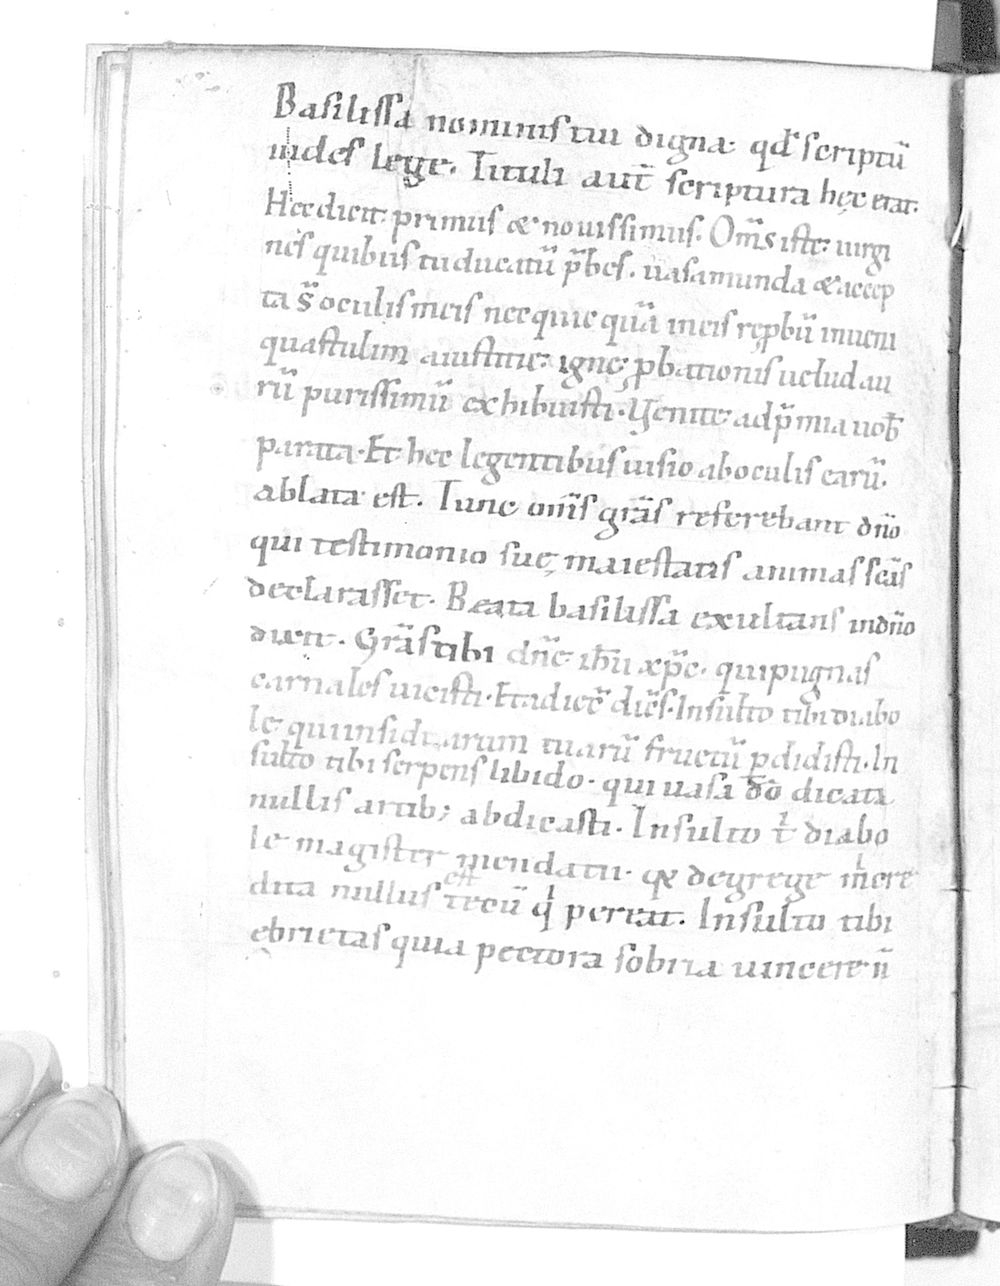 Basilissa nominis tui digna. qd̓ scriptū
uides lege. Tituli aut̄ scriptura hęc erat.
Hec dicit primus & nouissimus. Om̄s iste uirgi
nes quibus tu ducatū p̄bes. uasa munda & accep
ta s̄ oculis meis nec quic quā in eis reꝓbū inueni
quas tulim a iustitie igne ꝓbationis uelud au
rū purissimū exhibuisti. Uenite ad p̄mia uob̄
parata. Et hec legentibus uisio ab oculis earū
ablata est. Tunc om̄s grās referebant dn̄o
qui testimonio suę maiestatis animas sc̄as
declarasset. Beata basilissa exultans in dn̄o
dicit. Grās tibi dn̄e ih̄u xp̄e. qui pugnas
carnales uicisti. Et adiec̄ dic̄s. Insulto tibi diabo
le qui insidiarum tuarū fructū ꝑdidisti. In
sulto tibi serpens libido. qui uasa dō dicata
nullis artib; abdicasti. Insulto t̓ diabo
le magister mendacii. qa de grege m̓ cre
dita nullus est tecū q̓ pereat. Insulto tibi
ebrietas quia pectora sobria uincere n̄